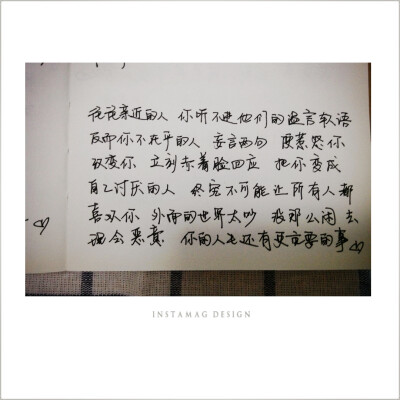 往往亲近的人 你听不进他们的温言软语
反而你不在乎的人 妄言两句 便惹怒你
改变你 立刻赤着脸回应 把你变成
自己讨厌的人 终究不可能让所有人都
喜欢你 外面的世界太吵 那么闲去
理会恶意 你的人生还有更重要的事
INSTAMAG DESIGN